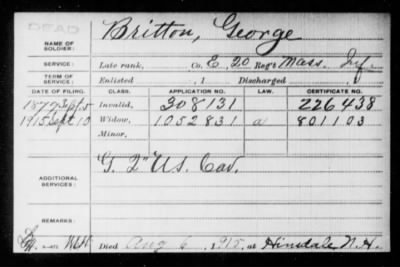 DEAD
NAME OF SOLDIER: Britton, George
SERVICE: Late rank, Co. E, 20 Reg't Mass. Inf.
TERM OF SERVICE: Enlisted , 1 Discharged , 1
DATE OF FILING. CLASS. APPLICATION NO. LAW. CERTIFICATE NO.
1877 Sept. 5 Invalid, 308131 226438
1915 Sept 10 Widow, 1052831 a 801103
Minor,
ADDITIONAL SERVICES: "G. 2" U.S. Cav.
REMARKS:
Died Aug 6, 1915, at Hinsdale N.H.